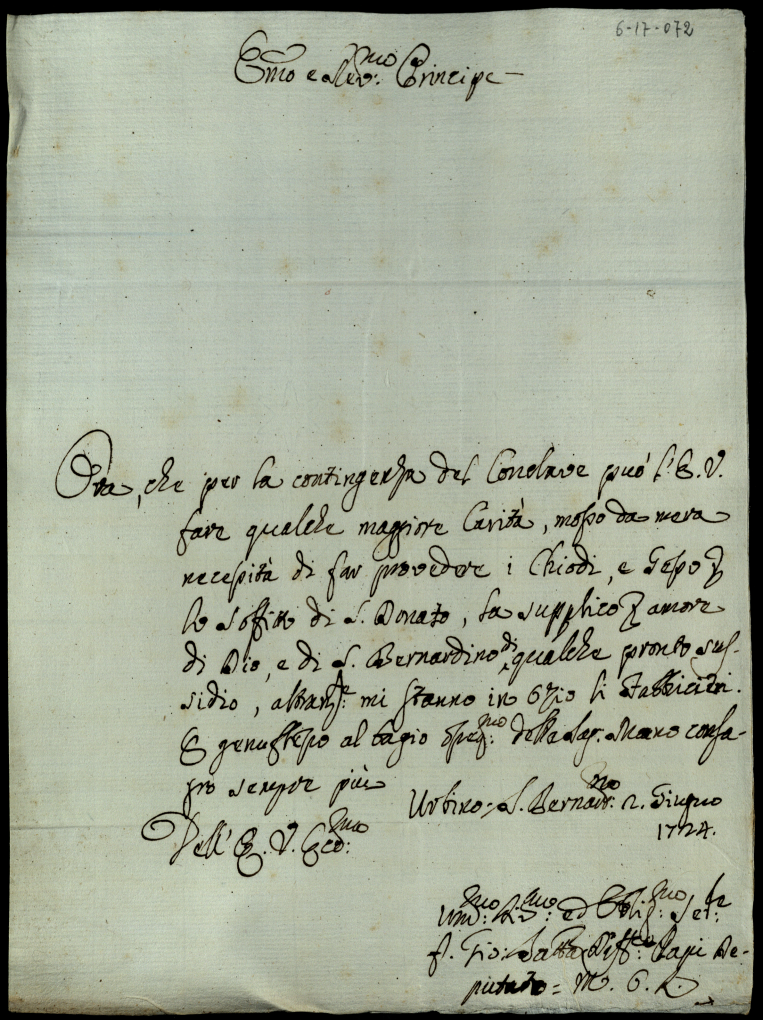 6-17-072
Emo e Rev:mo Principe
Ora, che per la contingenza del Conclave può l'E. V.
fare qualche maggiore Carità, mosso da mera
necessità di far provedere i Chiodi, e Gesso p
lo soffitto di S. Donato, la supplico p amore
di Dio, e di S. Bernardino di qualche pronto sus-
sidio, altram:te mi stanno in ozio li Fabbricieri.
E genuflesso al bagio della Sag: Mano consa-
gro sempre più
Urbino: S. Bernard:no 2. Giugno
1724.
Dell' E. V.
Um:mo ed Obblig:mo
f. Gio: Batta Papi De-
putato = M. O. R.